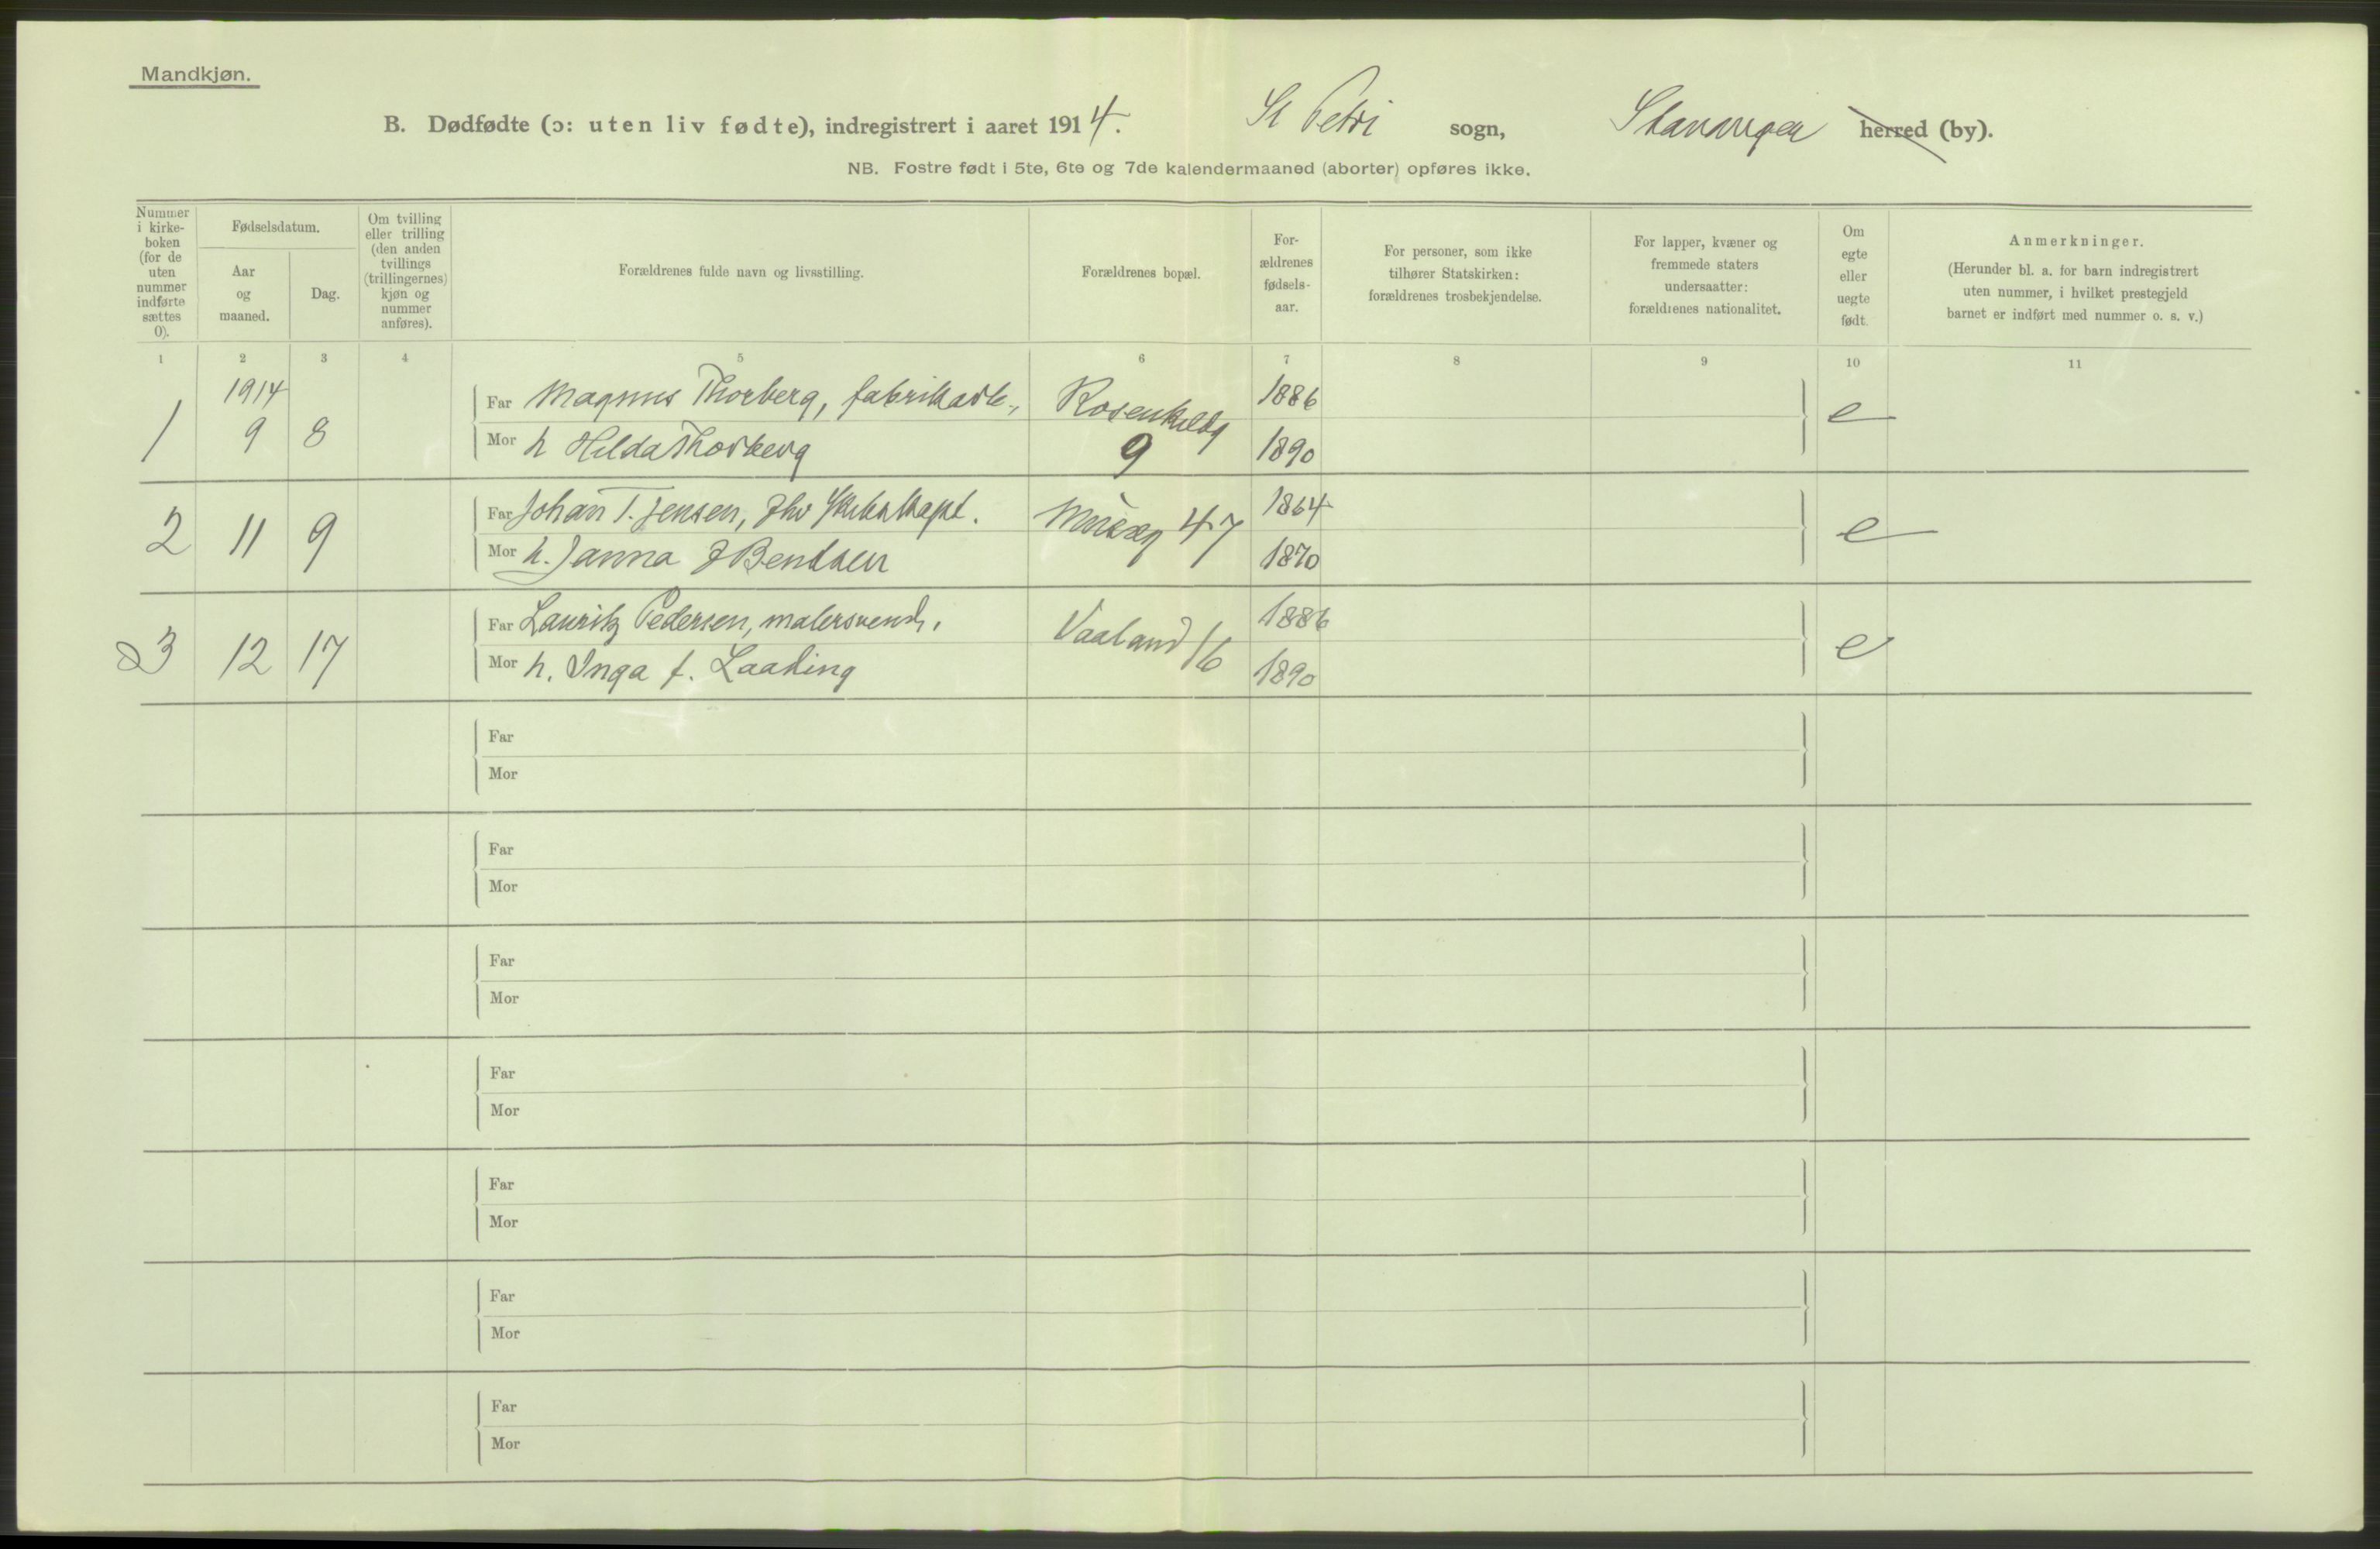 Mandkjøn.
B. Dødfødte (ɔ: uten liv fødte), indregistrert i aaret 1914. St Petri sogn, Stavanger herred (by).
NB. Fostre født i 5te, 6te og 7de kalendermaaned (aborter) opføres ikke.
Nummer
i kirke-
boken
(for de
uten
nummer
indførte
sættes
0).
Fødselsdatum.
Aar
og
maaned.
Dag.
Om tvilling
eller trilling
(den anden
tvillings
(trillingernes)
kjøn og
nummer
anføres).
Forældrenes fulde navn og livsstilling.
Forældrenes bopæl.
For-
ældrenes
fødsels-
aar.
For personer, som ikke
tilhører Statskirken:
forældrenes trosbekjendelse.
For lapper, kvæner og
fremmede staters
undersaatter:
forældrenes nationalitet.
Om
egte
eller
uegte
født.
Anmerkninger.
(Herunder bl. a. for barn indregistrert
uten nummer, i hvilket prestegjeld
barnet er indført med nummer o. s. v.)
1 2 3 4 5 6 7 8 9 10 11
1914
Far Magnus Thorberg, fabrikarb., Rosenkildg 1886
1 9 8 e
Mor h Hilda Thorberg 9 1890
Far Johan T. Jensen, Skibskapt. 1864
2 11 9 47 e
Mor h. Janna J Bendsen 1870
Far Lauritz Pedersen, malersvend, 1886
3 12 17 Vaaland 16 e
Mor h. Inga f. Laading 1890
Far
Mor
Far
Mor
Far
Mor
Far
Mor
Far
Mor
Far
Mor
Far
Mor